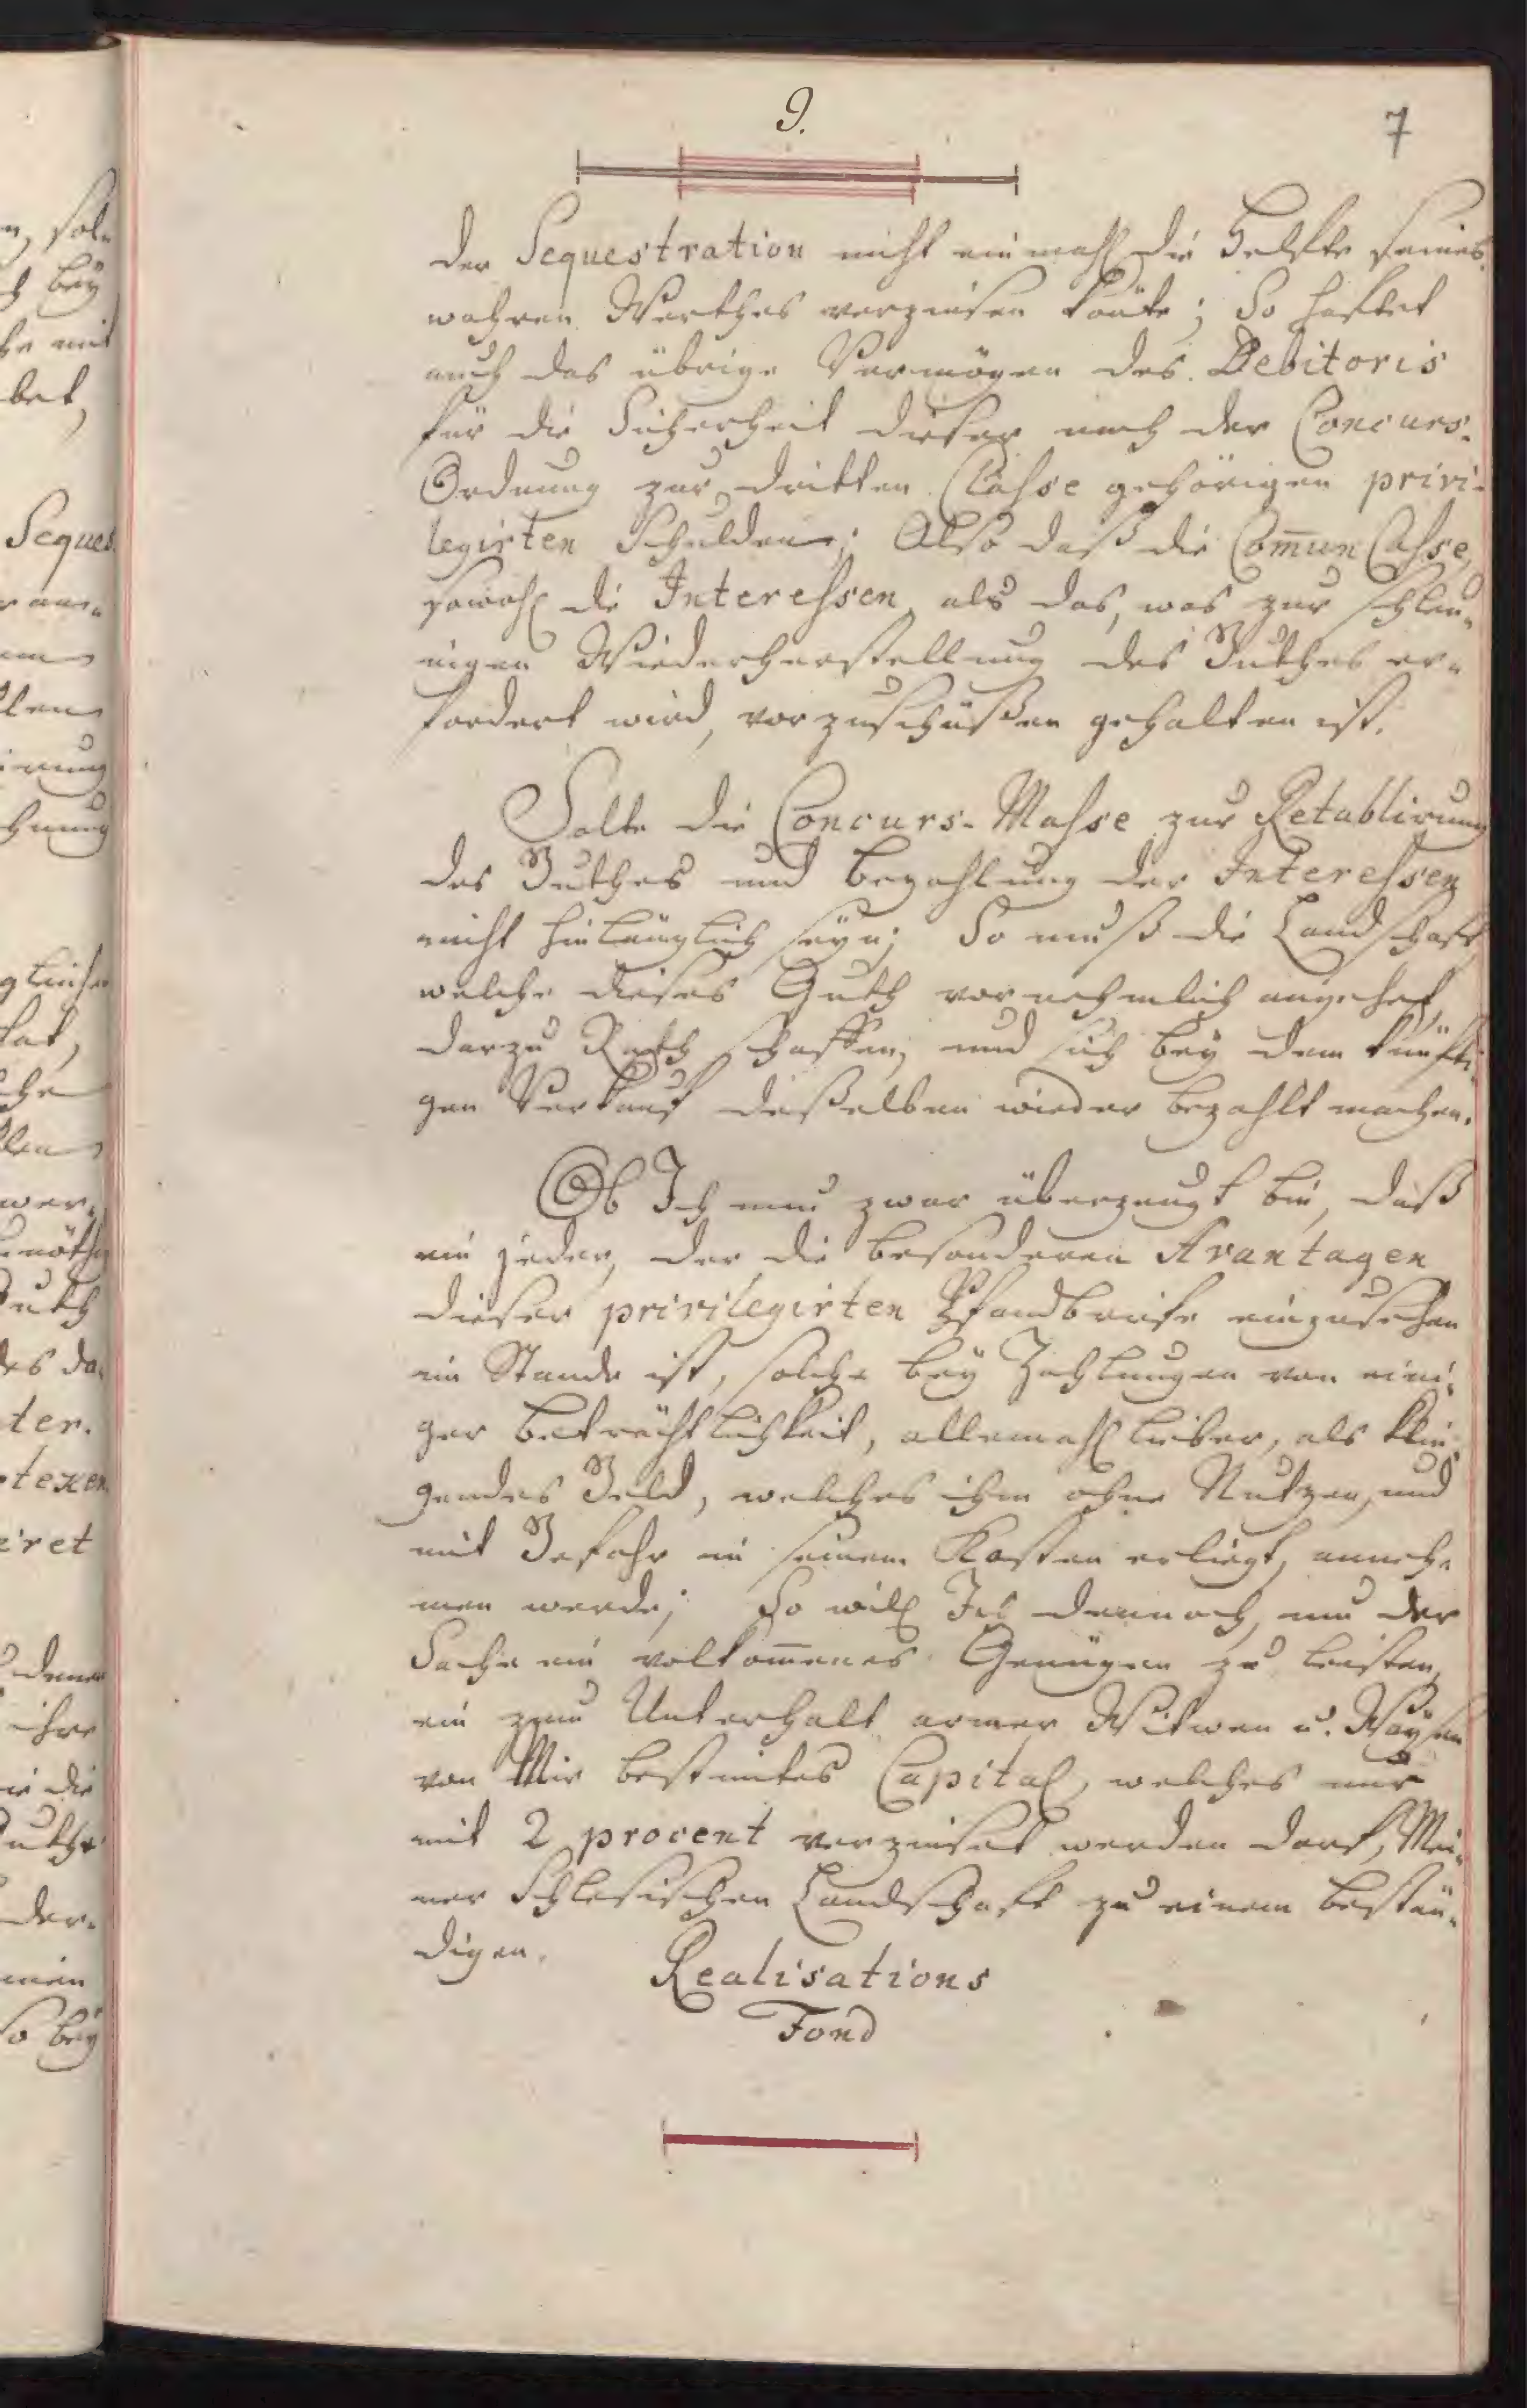 9.
7
der Sequestration nicht ein mahl die Helfte seines
wahren Werthes verzinsen könte; So haftet
auch das übrige Vermögen des Debitoris
für die Sicherheit dieser nach der Concurs-
Ordnung zur dritten Classe gehörigen privi-
legirten Schulden; Also daß die Com̄un Casse,
sowohl die Interessen, als das, was zur schleu-
nigen Wiederherstellung des Guthes er-
fordert wird, vorzuschüßen gehalten ist.
Solte die Concurs-Masse zur Retablirung
des Guthes und Bezahlung der Interessen
nicht hinlänglich seyn; So muß die Landschaft
welche dieses Guth vornehmlich angehet,
darzu Rath schaffen, und sich bey dem künfti-
gen Verkauf deßelben wieder bezahlt machen.
Ob Ich nun zwar überzeugt bin, daß
ein jeder, der die besonderen Avantagen
dieser privilegirten Pfandbriefe einzusehen
im Stande ist, solche bey Zahlungen von eini-
ger Beträchtlichkeit, allemahl lieber, als klin-
gendes Geld, welches ihm ohne Nutzen, und
mit Gefahr in seinem Kasten erliegt, anneh-
men werde; So will Ich dennoch, um der
Sache ein volkom̄enes Genügen zu leisten,
ein zum Unterhalt armer Witwen u. Waysen
von Mir bestimtes Capital, welches nur
mit 2 procent verzinset werden darf, Mei-
ner Schlesischen Landschaft zu einem bestän-
digen.
Realisations
Fond